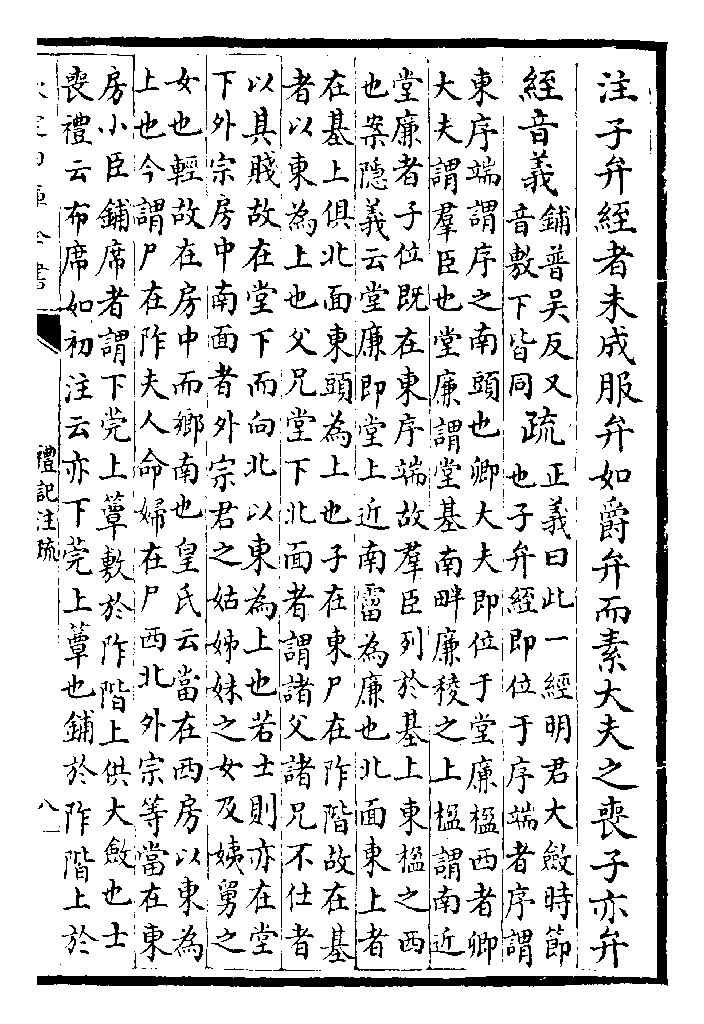 注子弁絰者未成服弁如爵弁而素大夫之喪子亦弁
絰音義鋪普吳反又
音敷下皆同
疏正義曰此一經明君大斂時節
也子弁絰即位于序端者序謂
東序端謂序之南頭也卿大夫即位于堂廉楹西者卿
大夫謂羣臣也堂廉謂堂基南畔廉稜之上楹謂南近
堂廉者子位既在東序端故羣臣列於基上東楹之西
也案隱義云堂廉即堂上近南霤為廉也北面東上者
在基上俱北面東頭為上也子在東尸在阼階故在基
者以東為上也父兄堂下北面者謂諸父諸兄不仕者
以其賤故在堂下而向北以東為上也若士則亦在堂
下外宗房中南面者外宗君之姑姊妹之女及姨舅之
女也輕故在房中而鄉南也皇氏云當在西房以東為
上也今謂尸在阼夫人命婦在尸西北外宗等當在東
房小臣鋪席者謂下莞上蕈敷於阼階上供大斂也士
喪禮云布席如初注云亦下莞上蕈也鋪於阼階上於
禮記注疏
八